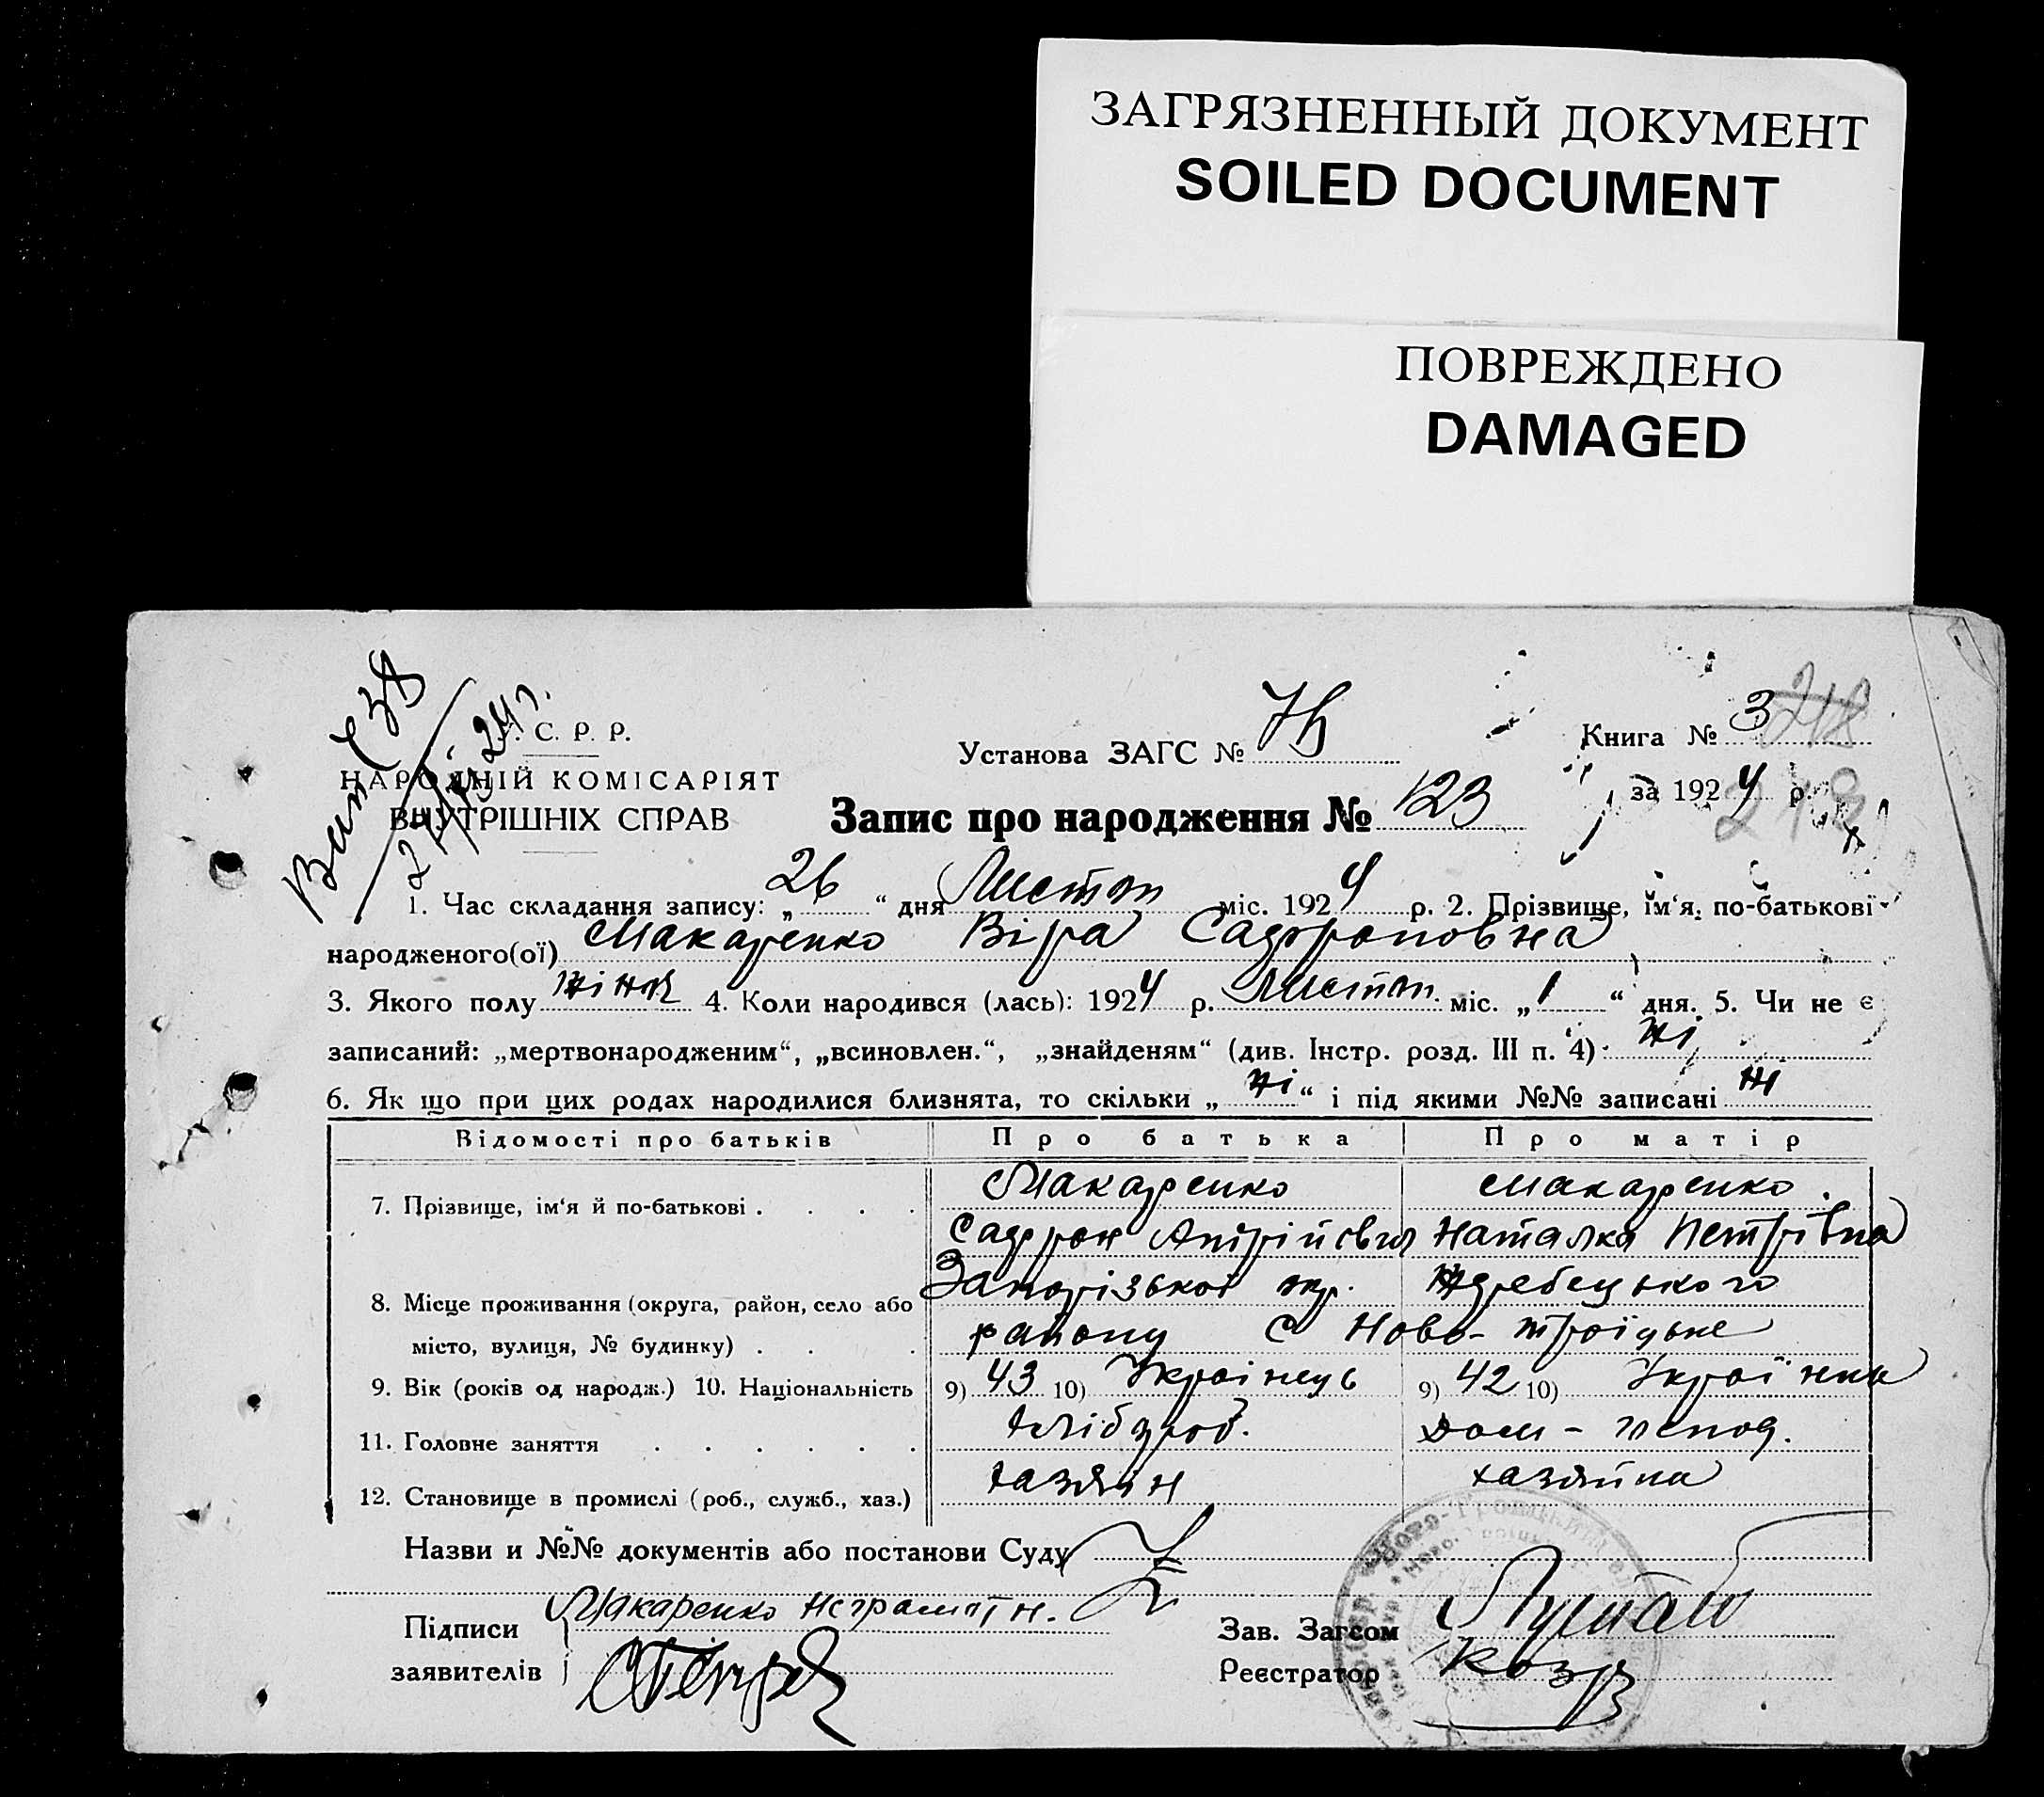 ЗАГРЯЗНЕННЫЙ ДОКУМЕНТ
SOILED DOCUMENT
ПОВРЕЖДЕНО
DAMAGED
С. Р. Р.
НАРОДНІЙ КОМІСАРІЯТ
ВНУТРІШНІХ СПРАВ
Установа ЗАГС №
Книга № 3 218
за 1924 р. 218
Запис про народження № 123
1. Час складання запису: „ 26 “ дня Листоп міс. 1924 р. 2. Прізвище, ім‘я, по-батькові
народженого(ої) Макаренко Віра Сафроновна
3. Якого полу жінк 4. Коли народився (лась): 1924 р. Листоп. міс. „ 1 “ дня. 5. Чи не є
записаний: „мертвонародженим“, „всиновлен.“, „знайденям“ (див. Інстр. розд. III п. 4) ні
6. Як що при цих родах народилися близнята, то скільки „ ні “ і під якими №№ записані ні
Відомості про батьків Про батька Про матір
7. Прізвище, ім‘я й по-батькові . . . . Макаренко Макаренко
Сафрон Андрійович Наталка Петрівна
8. Місце проживання (округа, район, село або Запорізької окр. Жеребецького
місто, вулиця, № будинку) . . . району с Ново-троїцьке
9. Вік (років од народж.) 10. Національність 9) 43 10) Українець 9) 42 10) Українка
11. Головне заняття . . . . . . хлібороб. дом-господ.
12. Становище в промислі (роб., служб., хаз.) хазяїн хазяйка
Назви и №№ документів або постанови Суду
Підписи Макаренко неграмотн. Зав. Загсом
заявителів Реєстратор